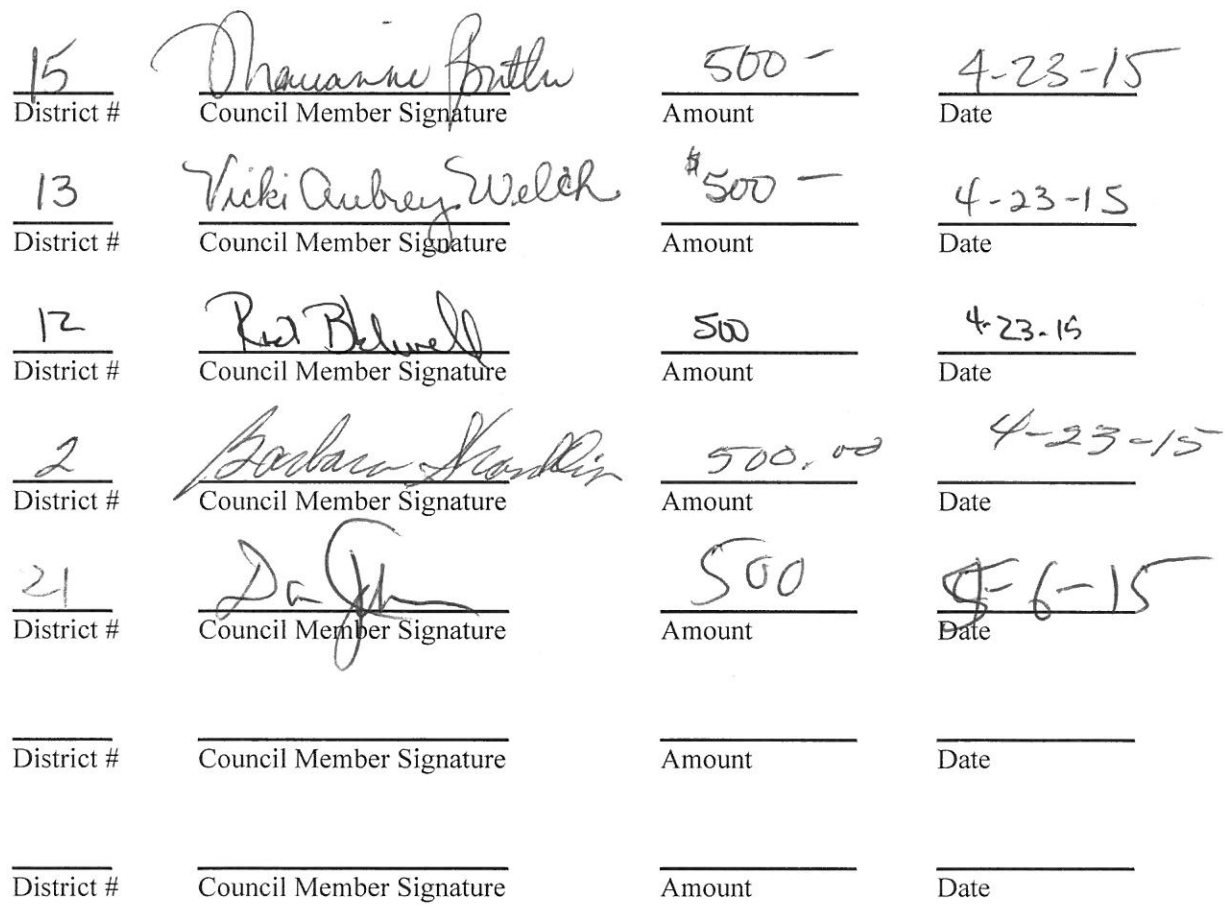 15 Marianne Butler 500 - 4-23-15
District # Council Member Signature Amount Date
13 Vicki Aubrey Welch $500 - 4-23-15
District # Council Member Signature Amount Date
12 Rick Blackwell 500 4-23-15
District # Council Member Signature Amount Date
2 Barbara Shanklin 500.00 4-23-15
District # Council Member Signature Amount Date
21 Dan Johnson 500 5-6-15
District # Council Member Signature Amount Date
District # Council Member Signature Amount Date
District # Council Member Signature Amount Date